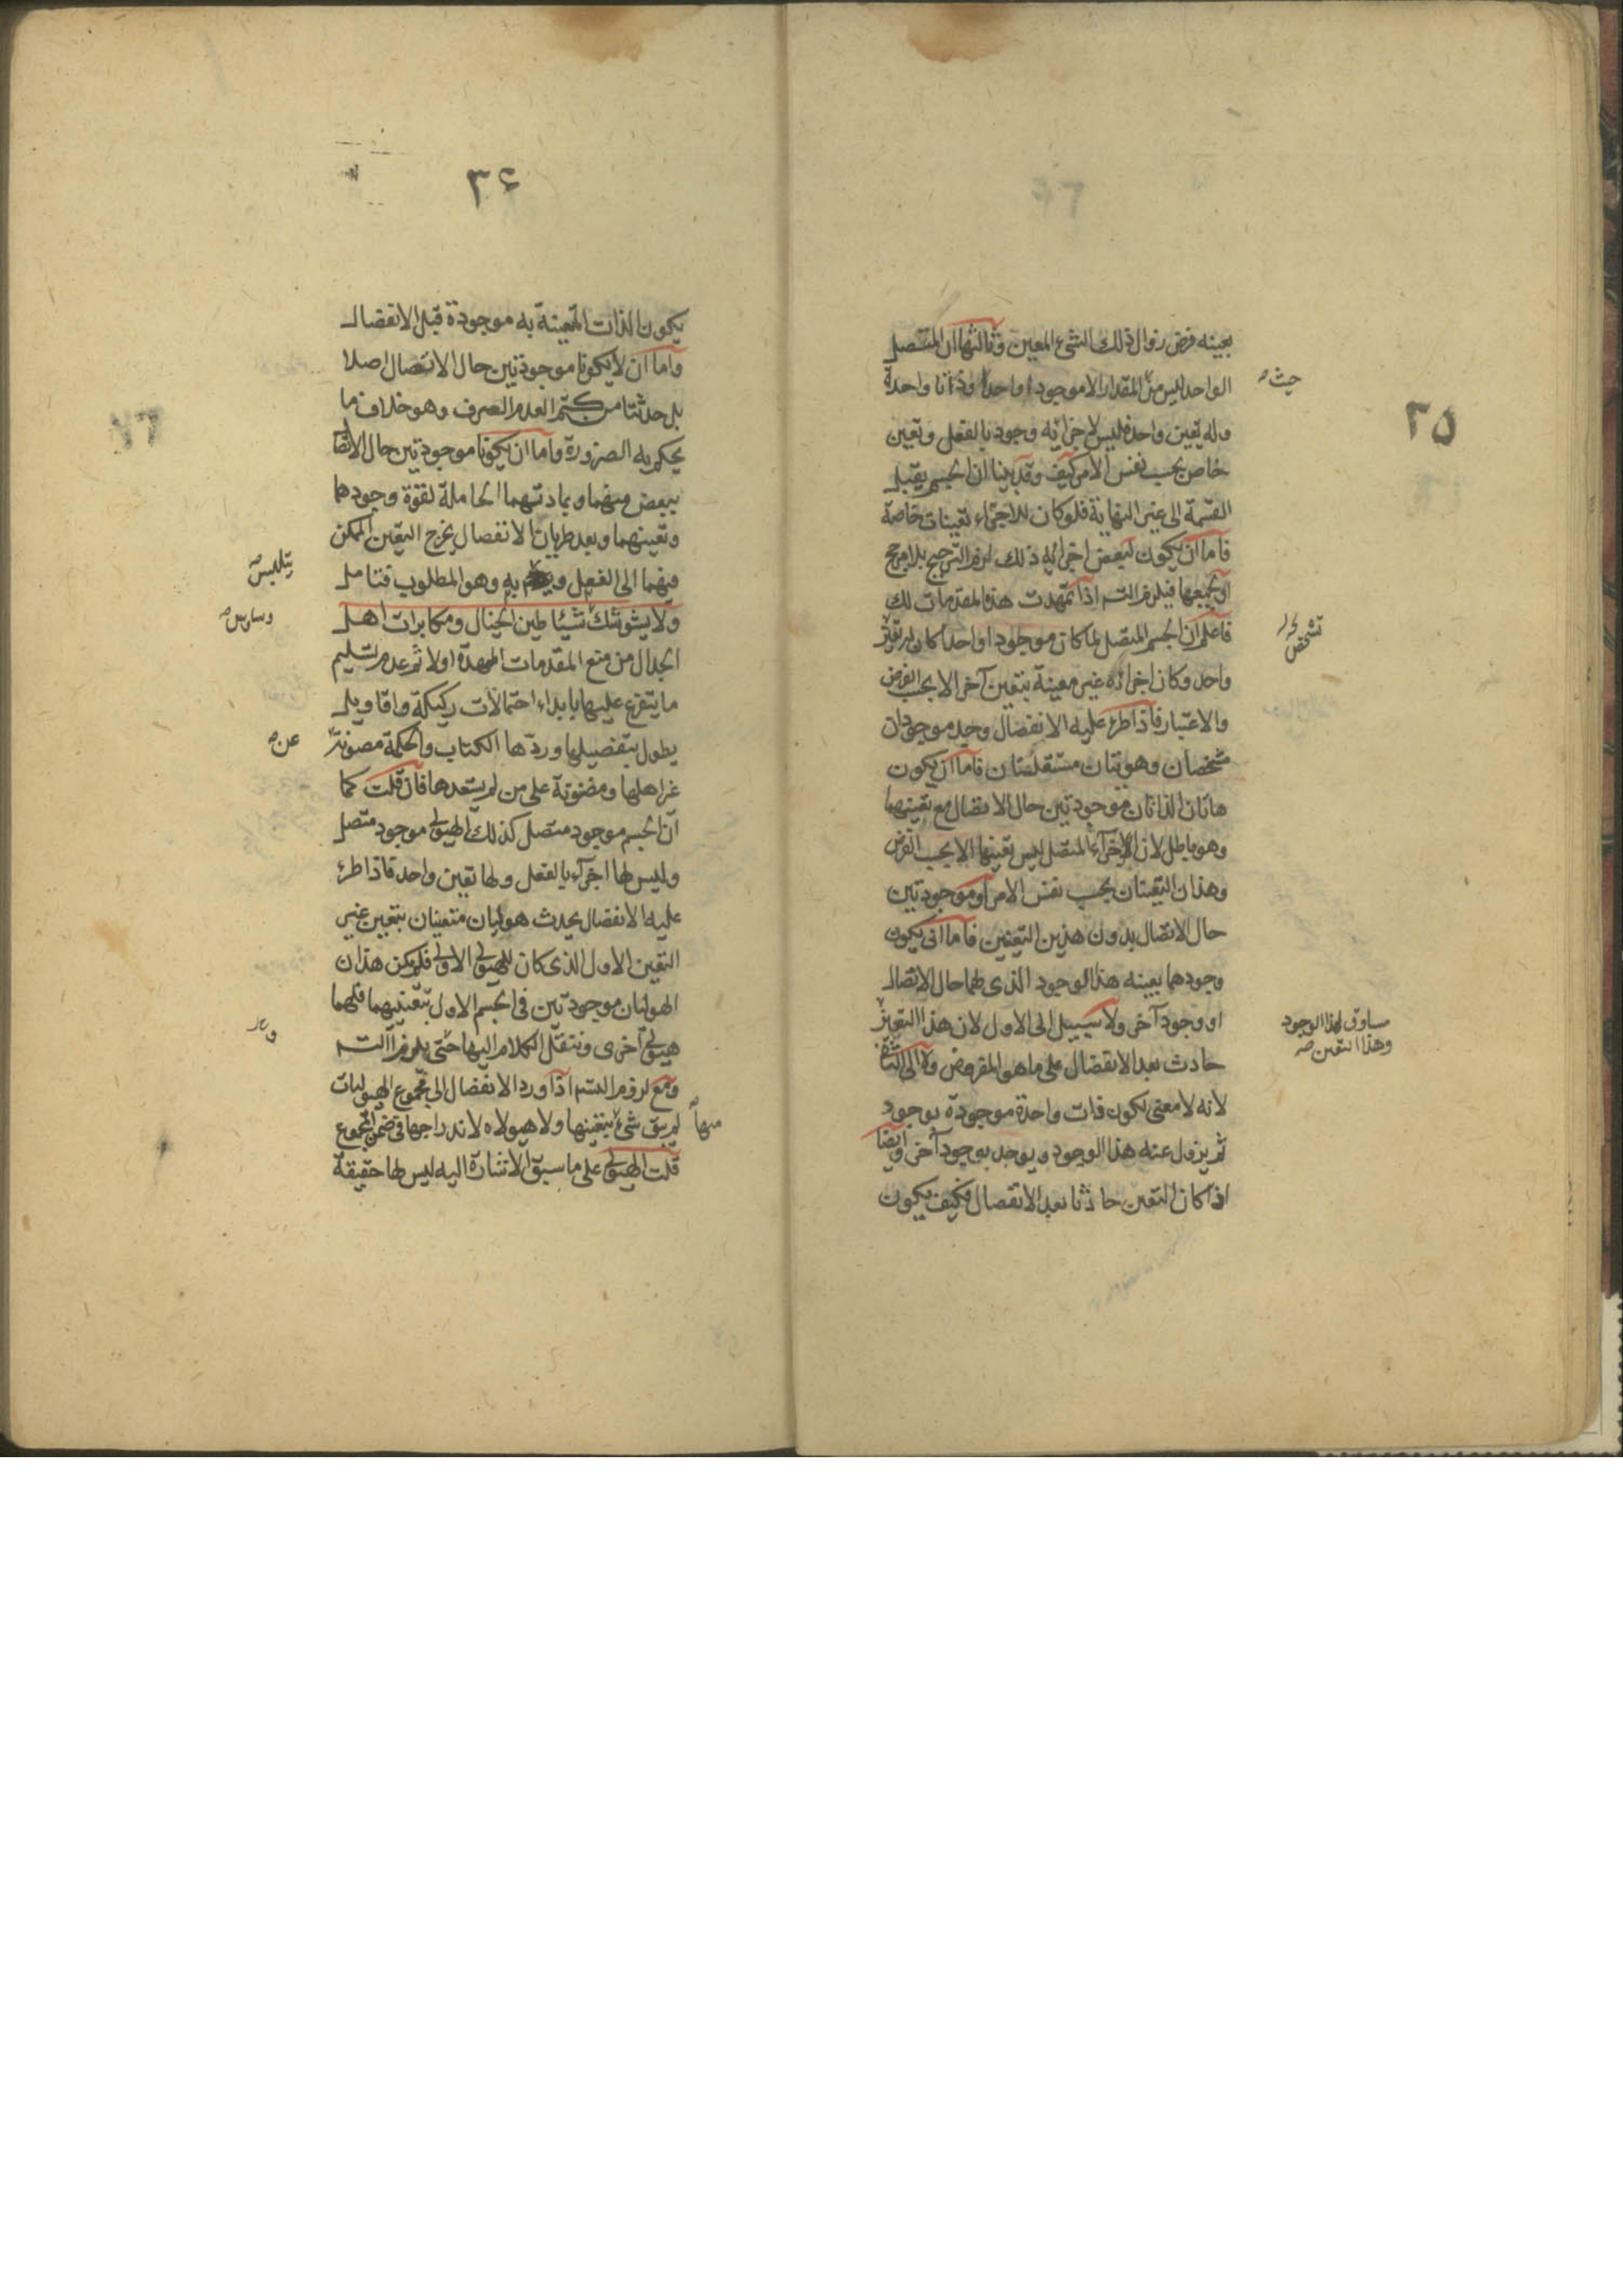 ٢٥
بعينه فرض زوال ذلك الشئ المعين وثالثها ان المتصل
الواحد ليس من المقدار الا موجودا واحدا وذاتا واحدة
حيث صح
وله تعين واحد فليس لاجزائه وجود بالفعل وتعين
خاص بحسب نفس الامر كيف وقد بينا ان الجسم يقبل
القسمة الى غير النهاية فلو كان للاجزاء تعينات خاصة
فاما ان يكون لبعض اجزائه ذلك لزم الترجيح بلا مرجح
او بجميعها فيلزم التسـ اذا تمهدت هذه المقدمات لك
فاعلم ان الجسم المتصل لما كان موجودا واحدا كان له تعين
تشخص
واحد وكان اجزائه غير معينة بتعين آخر الا بحسب الفرض
والاعتبار فاذا طرء عليه الانفصال وجد موجودان
متشخصان وهويتان مستقلتان فاما ان يكون
هاتان الذاتان موجودتين حال الاتصال مع تعينهما
وهو باطل لان الاجزاء المتصل ليس تعينها الا بحسب الفرض
وهذان التعينان بحسب نفس الامر او موجودتين
حال الاتصال بدون هذين التعينين فاما ان يكون
وجودهما بعينه هذا الوجود الذى لهما حال الاتصال
او وجود آخر ولا سبيل الى الاول لان هذا التعين
مساوق لهذا الوجود
وهذا التعين صح
حادث بعد الانفصال على ما هو المفروض ولا الى الثانى
لانه لا معنى لكون ذات واحدة موجودة بوجود
ثم يزول عنه هذا الوجود ويوجد بوجود آخر وايضا
اذا كان التعين حادثا بعد الانفصال فكيف يكون
٣۶
يكون الذات المتعينة به موجودة قبل الانفصال
واما ان لا يكونا موجودتين حال الاتصال اصلا
بل حدثتا من كتم العدم الصرف وهو خلاف ما
يحكم به الضرورة واما ان يكونا موجودتين حال الاتصا
ببعض منهما وبمادتهما الحاملة لقوة وجودهما
وتعينهما وبعد طريان الانفصال يخرج التعين الممكن
فيهما الى الفعل و به وهو المطلوب فتامل
يتلبس صح
ولا يشوشنك شياطين الخيال ومكابرات اهل
وساوس صح
الجدال من منع المقدمات الممهدة اولا ثم عدم تسليم
ما يتفرع عليها بابداء احتمالات ركيكة واقاويل
يطول بتفصيلها وردها الكتاب والحكمة مصونة
عن صح
غراهلها ومضنونة على من لم يستعدها فان قلت كما
ان الجسم موجود متصل كذلك الهيولى موجود متصل
وليس لها اجزاء بالفعل ولها تعين واحد فاذا طرء
عليه الانفصال يحدث هيوليان متعينان بتعين غير
التعين الاول الذى كان للهيولى الاولى فلم يكن هذان
الهوليان موجودتين فى الجسم الاول بتعينيهما فلهما
هيولى آخرى وننقل الكلام اليها حتى يلزم التسـ
ومع لزوم التسـ اذا ورد الانفصال الى مجموع الهيوليات
لم يبق شئ بتعينها ولا هيولاه لاندراجها فى ضمن المجموع
منها
قلت الهيولى على ما سبق الاشارة اليه ليس لها حقيقة